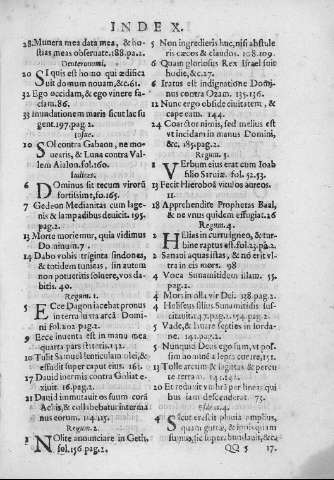 INDEX.
28. Munera mea data mea, & ho-
stias meas obseruate. 188. pa. 2.
Deuteronomi.
20 SI quis est homo qui ædifica
uit domum nouam, &c. 61.
32 Ego occidam, & ego vinere fa-
ciam. 86.
33 Inundationem maris sicut lac su
gent. 197. pag. 2.
Iosue.
10 SOl contra Gabaon, ne mo-
uearis, & Luna contra Val-
lem Aialon. fol. 160.
Iudices.
6 DOminus sit tecum virorū
fortissime, fo. 165.
7 Gedeon Medianitas cum lage-
nis & lampadibus deuicit. 195.
pag. 2.
13 Morte moriemur, quia vidimus
Dominum. 7
14 Dabo vobis triginta sindones,
& totidem tunicas, sin autem
non potueritis soluere, vos da-
bitis. 40.
Regum. 1.
5 ECce Dagon iacebat pronus
in terra iuxta arcā Domi
ni fol. 202. pag. 2.
9 Ecce inuenta est in manu mea
quarta pars stateris. 132.
10 Tulit Samuel lenticulam olei, &
effudit super caput eius. 163.
17 Dauid inermis contra Goliat e-
xiuit. 16. pag. 2.
21 Dauid immutauit os suum corā
Achis, & collabebatur inter ma
nus eorum. 114. 115.
Regum. 2.
NOlite annunciare in Geth,
fol. 156 pag. 2.
5 Non ingredieris huc, nisi abstule
ris cæcos & claudos. 108. 109.
6 Quam gloriosus Rex Israel fuit
hodie, &c. 27.
6 Iratus est indignatione Domi-
nus contra Ozam. 135. 136.
12 Nunc ergo obside ciuitatem, &
cape eam. 144.
24 Coarctor nimis, sed melius est
vt incidam in manus Domini,
&c, 185. pag. 2.
Regum. 3.
1 VErbum eius erat cum Ioab
filio Saruiæ. fol. 52. 53.
13 Fecit Hieroboā vitulos aureos.
11.
18 Apprehendite Prophetas Baal,
& ne vnus quidem effugiat. 26
Regum. 4.
2 HElias in curru igneo, & tur-
bine raptus est. fol. 23. pa. 2.
2 Sanaui aquas istas, & nō erit vl-
tra in eis mors. 98
4 Voca Sunamitidem illam. 55.
pag. 2.
4 Mors in olla vir Dei. 138. pag. 2.
4 Heliseus filius Sunamitidis sus-
citauit. 147. pag. 2. 154. pag. 2.
5 Vade, & lauare septies in Iorda-
ne. 141. pag. 2.
5 Nunquid Deus ego sum, vt pos-
sim
20 Et reduxit vmbrā per lineas
Esaiæ. 4.
4 SIcut erescit pluuia
QQ 5 17.